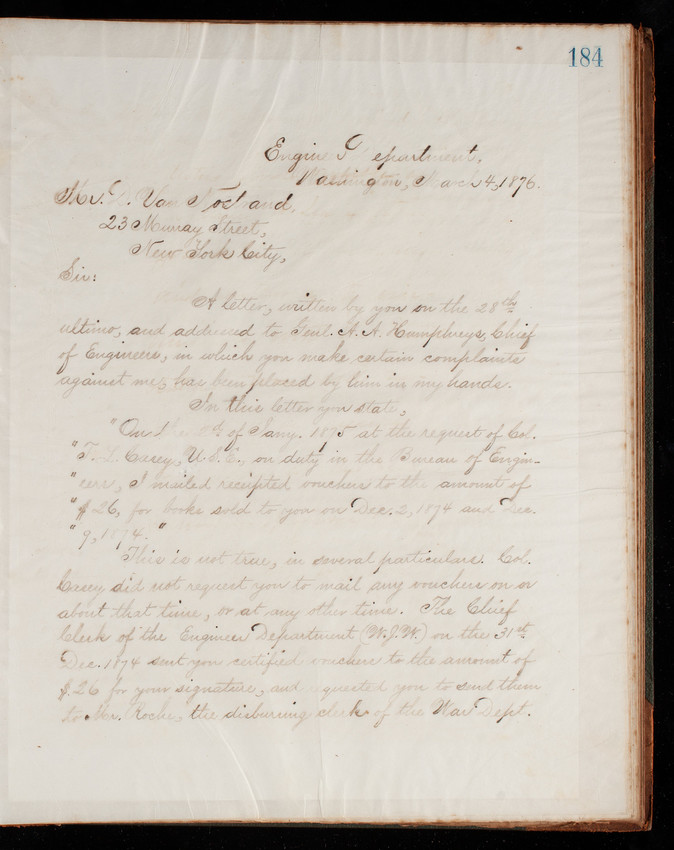 184
Engine Department,
Washington, March 4, 1876.
Mr. D. Van Nostrand,
23 Murray Street,
New York City,
Sir:
A letter, written by you on the 28th
ultimo, and addressed to Genl. A. A. Humphreys, Chief
of Engineers, in which you make certain complaints
against me, has been placed by him in my hands.
In this letter you state,
"On the of Jany. 1875 at the request of Col.
"T. L. Casey, U.S.E., on duty in the Bureau of Engin-
"eers, I mailed receipted vouchers to the amount of
"$26, for books sold to you on Dec. 2, 1874 and Dec.
"9, 1874."
This is not true, in several particulars. Col.
Casey did not request you to mail any vouchers on or
about that time, or at any other time. The Chief
Clerk of the Engineer Department (W.J.W.) on the 31st
Dec. 1874 sent you certified vouchers to the amount of
$26 for your signature, and requested you to send them
to Mr. Roche, the disbursing clerk of the War Dept.